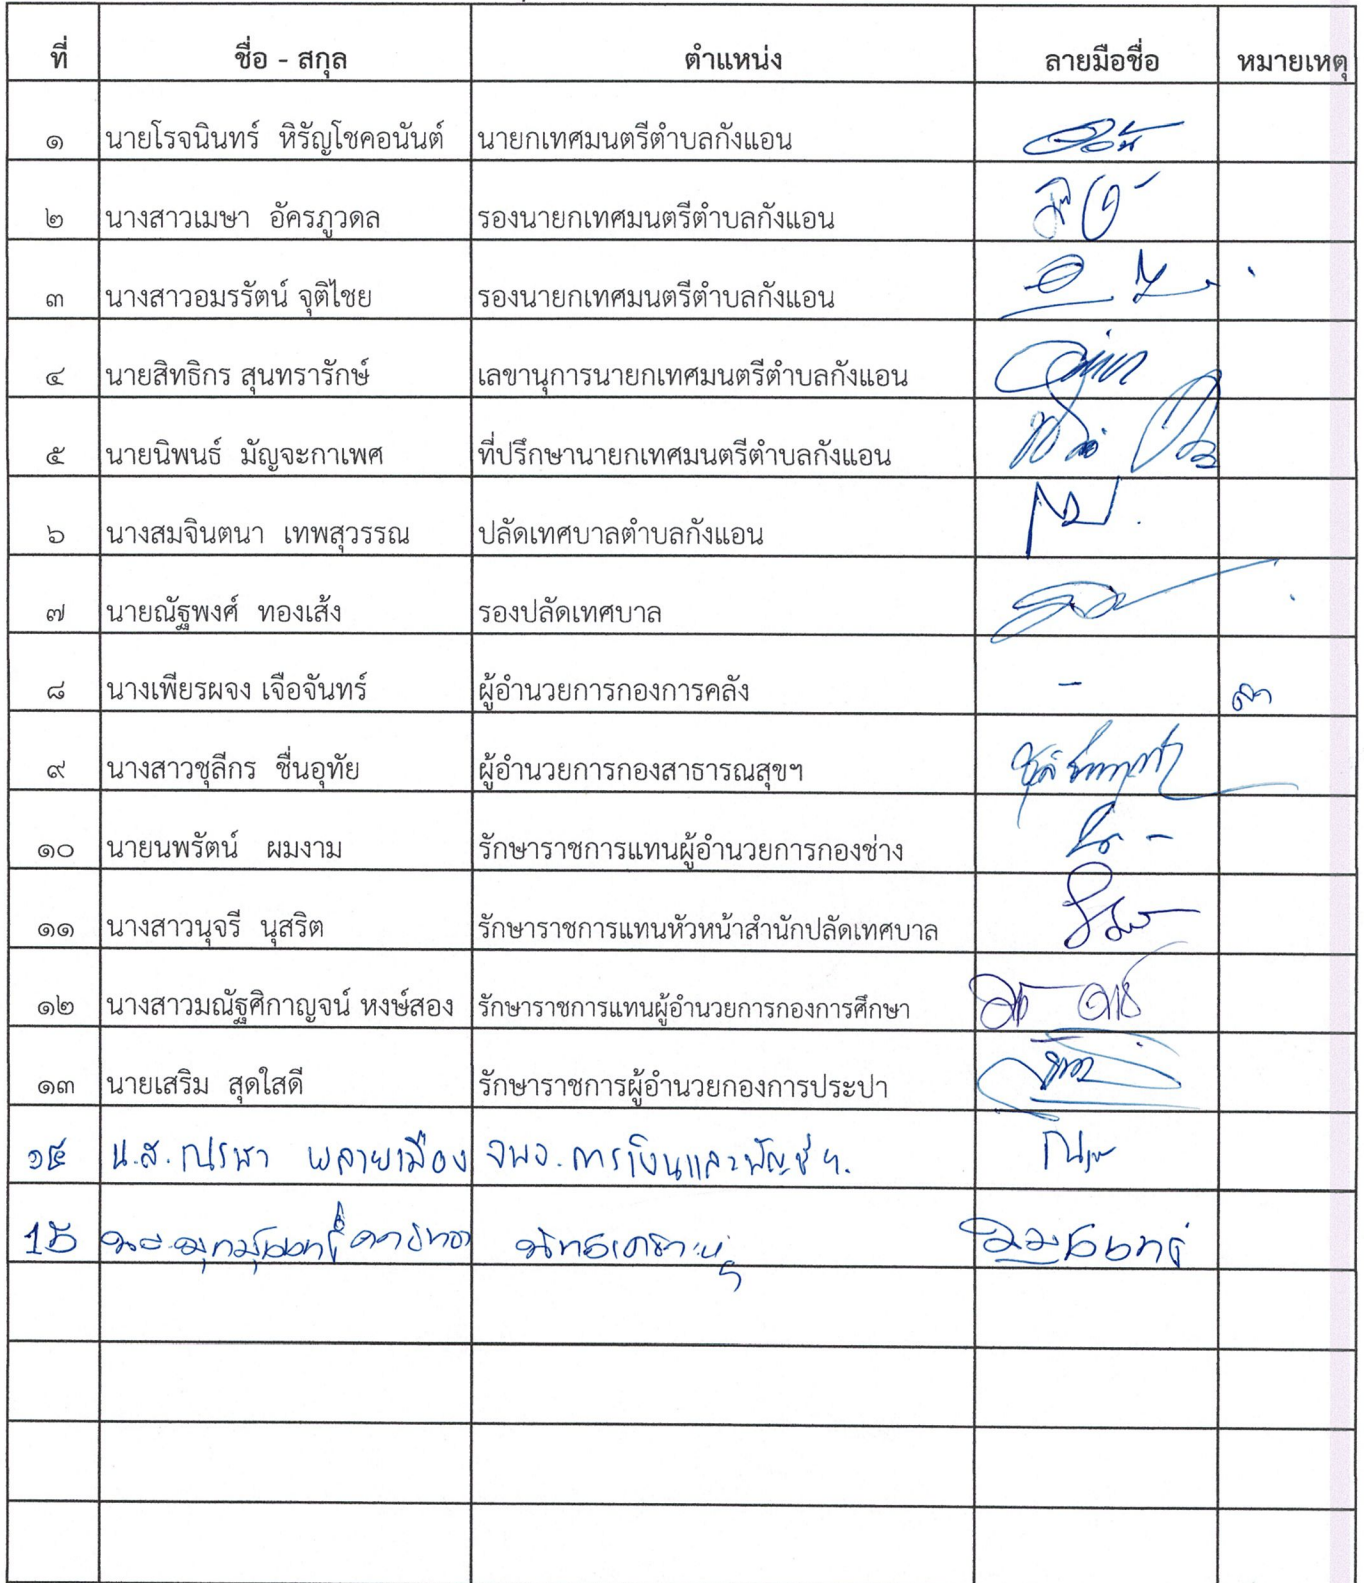 ที่ ชื่อ - สกุล ตำแหน่ง ลายมือชื่อ หมายเหตุ
๑ นายโรจนินทร์ หิรัญโชคอนันต์ นายกเทศมนตรีตำบลกังแอน
๒ นางสาวเมษา อัครภูวดล รองนายกเทศมนตรีตำบลกังแอน
๓ นางสาวอมรรัตน์ จุติไชย รองนายกเทศมนตรีตำบลกังแอน
๔ นายสิทธิกร สุนทรารักษ์ เลขานุการนายกเทศมนตรีตำบลกังแอน
๕ นายนิพนธ์ มัญจะกาเพศ ที่ปรึกษานายกเทศมนตรีตำบลกังแอน
๖ นางสมจินตนา เทพสุวรรณ ปลัดเทศบาลตำบลกังแอน
๗ นายณัฐพงศ์ ทองเส้ง รองปลัดเทศบาล
๘ นางเพียรผจง เจือจันทร์ ผู้อำนวยการกองการคลัง - ลา
๙ นางสาวชุลีกร ชื่นอุทัย ผู้อำนวยการกองสาธารณสุขฯ
๑๐ นายนพรัตน์ ผมงาม รักษาราชการแทนผู้อำนวยการกองช่าง
๑๑ นางสาวนุจรี นุสริต รักษาราชการแทนหัวหน้าสำนักปลัดเทศบาล
๑๒ นางสาวมณัฐศิกาญจน์ หงษ์สอง รักษาราชการแทนผู้อำนวยการกองการศึกษา
๑๓ นายเสริม สุดใสดี รักษาราชการผู้อำนวยกองการประปา
๑๔ น.ส. พลายเมือง จพง.การเงินและบัญชีฯ
15